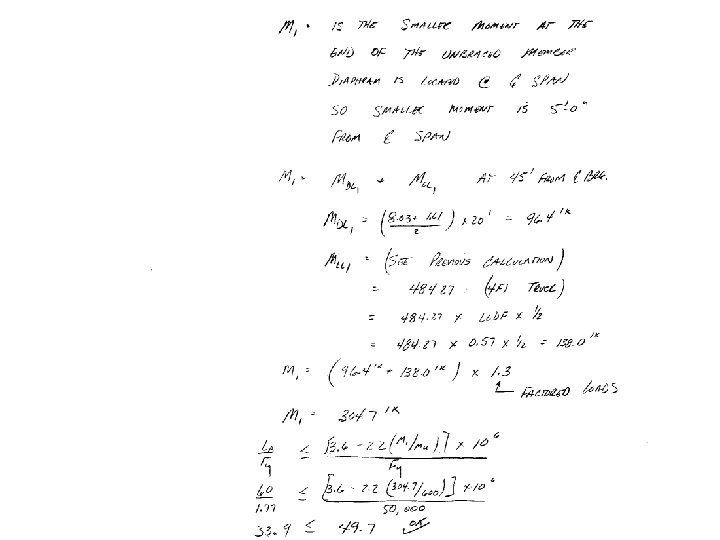 M₁ = IS THE SMALLER MOMENT AT THE
END OF THE UNBRACED MEMBER
DIAPHRAM IS LOCATED @ ℄ SPAN
SO SMALLER MOMENT IS 5'-0"
FROM ℄ SPAN
M₁ = M_DL₁ + M_LL₁ AT 45' FROM ℄ BRG.
M_DL₁ = (8.03 + 1.61 / 2) x 20' = 96.4 'K
M_LL₁ = (SEE PREVIOUS CALCULATION)
= 484.27 (4F1 TRUCK)
= 484.27 x LLDF x 1/2
= 484.27 x 0.57 x 1/2 = 138.0 'K
M₁ = (96.4 'K + 138.0 'K) x 1.3
↑ FACTORED LOADS
M₁ = 304.7 'K
Lb / ry ≤ [3.6 - 2.2 (M₁/Mu)] x 10⁶ / Fy
60 / 1.77 ≤ [3.6 - 2.2 (304.7/600)] x 10⁶ / 50,000
33.9 ≤ 49.7 OK